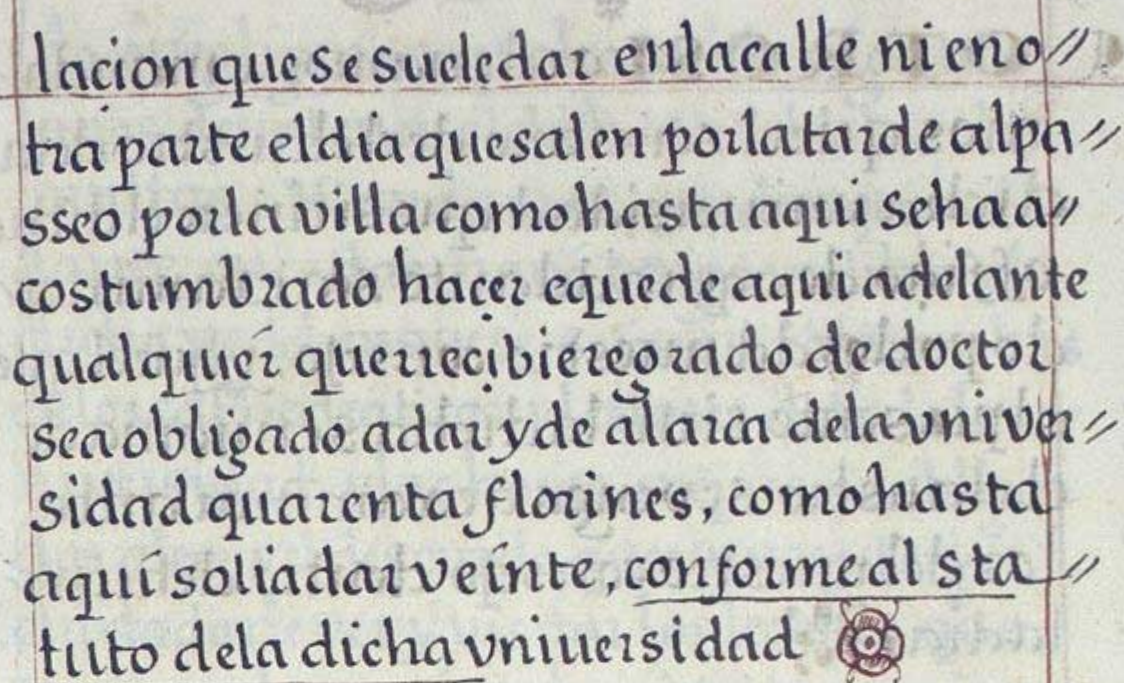 laçion que se suele dar en la calle ni en o//
tra parte el dia que salen por la tarde al pa//
sseo por la villa como hasta aqui se ha a//
costumbrado haçer e que de aqui adelante
qualquier que rreçibiere grado de doctor
sea obligado a dar y de a la arca de la vniver//
sidad quarenta florines, como hasta
aquí solia dar veinte, conforme al sta//
tuto de la dicha vniuersidad